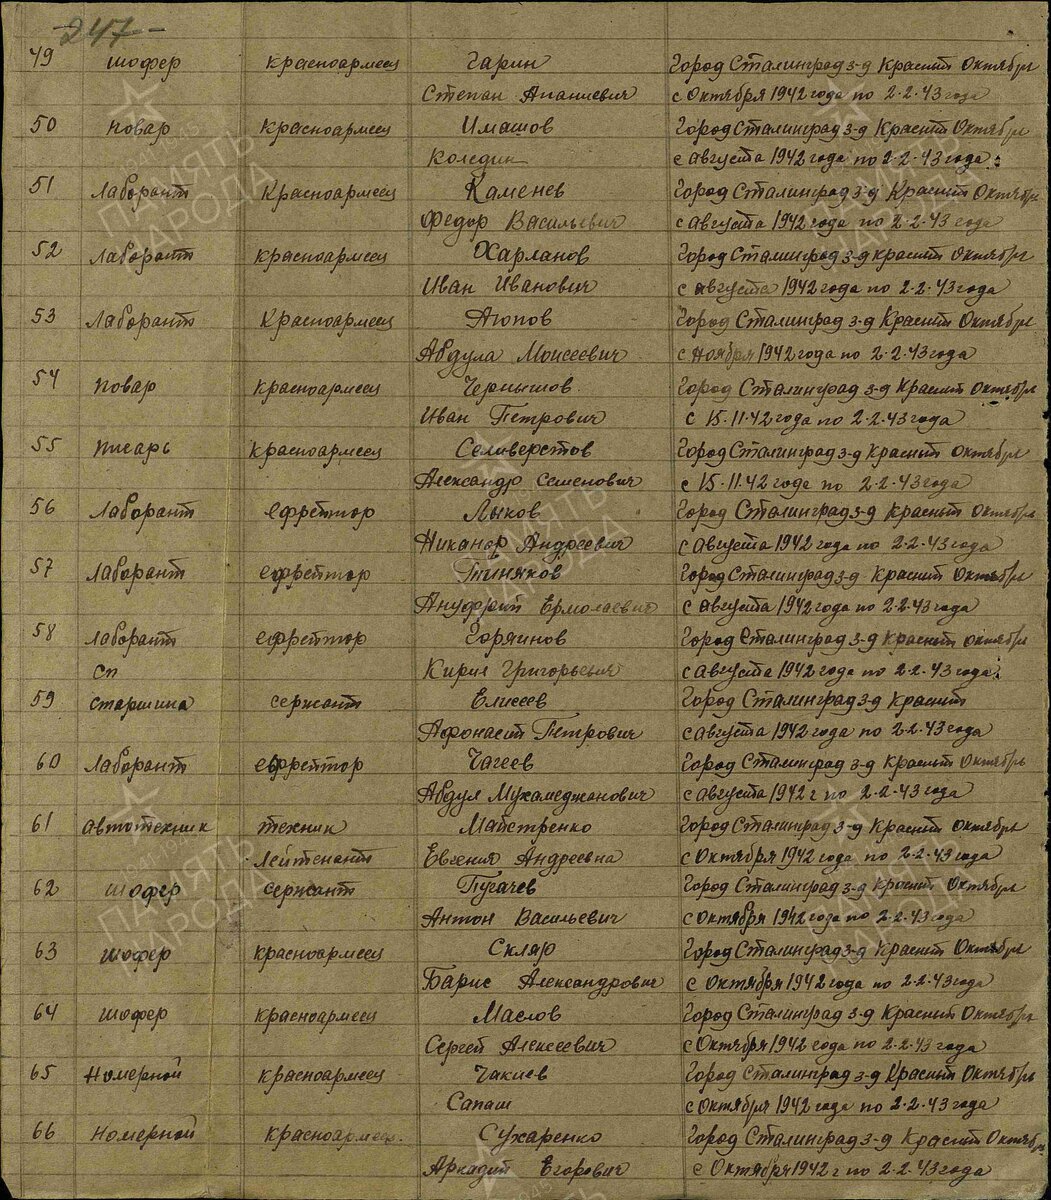 -247-
49 шофер красноармеец Гарин Город Сталинград з-д Красный Октябрь
Степан Ананиевич с Октября 1942 года по 2-2-43 года
50 повар красноармеец Имашов Город Сталинград з-д Красный Октябрь
Коледин с августа 1942 года по 2-2-43 года.
51 Лаборант Красноармеец Каменев Город Сталинград з-д Красный Октябрь
Федор Васильевич с августа 1942 года по 2-2-43 года
52 Лаборант красноармеец Харланов Город Сталинград з-д красный Октябрь
Иван Иванович с августа 1942 года по 2-2-43 года
53 Лаборант Красноармеец Аюпов Город Сталинград з-д Красный Октябрь
Абдула Моисеевич с Ноября 1942 года по 2-2-43 года
54 повар красноармеец Чернышов Город Сталинград з-д Красный Октябрь
Иван Петрович с 15-11-42 года по 2-2-43 года
55 писарь красноармеец Селиверстов Город Сталинград з-д Красный Октябрь
Александр Семенович с 15-11-42 года по 2-2-43 года
56 Лаборант ефрейтор Лыков Город Сталинград з-д Красный Октябрь
Никанор Андреевич с августа 1942 года по 2-2-43 года
57 Лаборант ефрейтор Тиняков Город Сталинград з-д Красный Октябрь
Ануфрий Ермолаевич с августа 1942 года по 2-2-43 года
58 Лаборант ефрейтор Горяинов Город Сталинград з-д Красный Октябрь
сп Кирил Григорьевич с августа 1942 года по 2-2-43 года.
59 старшина сержант Елисеев Город Сталинград з-д Красный
Афонасий Петрович с августа 1942 года по 2-2-43 года
60 Лаборант ефрейтор Чагеев Город Сталинград з-д Красный Октябрь
Абдул Мухамеджанович с августа 1942 г по 2-2-43 года
61 автотехник техник Майстренко Город Сталинград з-д Красный Октябрь
Лейтенант Евгения Андреевна с Октября 1942 года по 2-2-43 года
62 шофер сержант Пугачев Город Сталинград з-д Красный Октябрь
Антон Васильевич с Октября 1942 года по 2-2-43 года
63 шофер красноармеец Скляр Город Сталинград з-д Красный Октябрь
Барис Александрович с Октября 1942 года по 2-2-43 года
64 шофер красноармеец Маслов Город Сталинград з-д Красный Октябрь
Сергей Алексеевич с Октября 1942 года по 2-2-43 года
65 Номерной красноармеец Чакиев Город Сталинград з-д Красный Октябрь
Сапаш с Октября 1942 года по 2-2-43 года
66 Номерной Красноармеец. Сухаренко Город Сталинград з-д Красный Октябрь
Аркадий Егорович с Октября 1942 г по 2-2-43 года